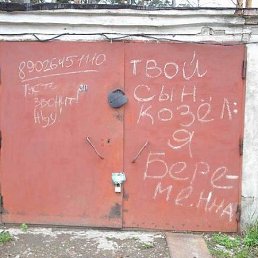 89026451110
Пусть
звонит
жду!
ТВОЙ
СЫН
КОЗЁЛ:
Я
Бере-
менна